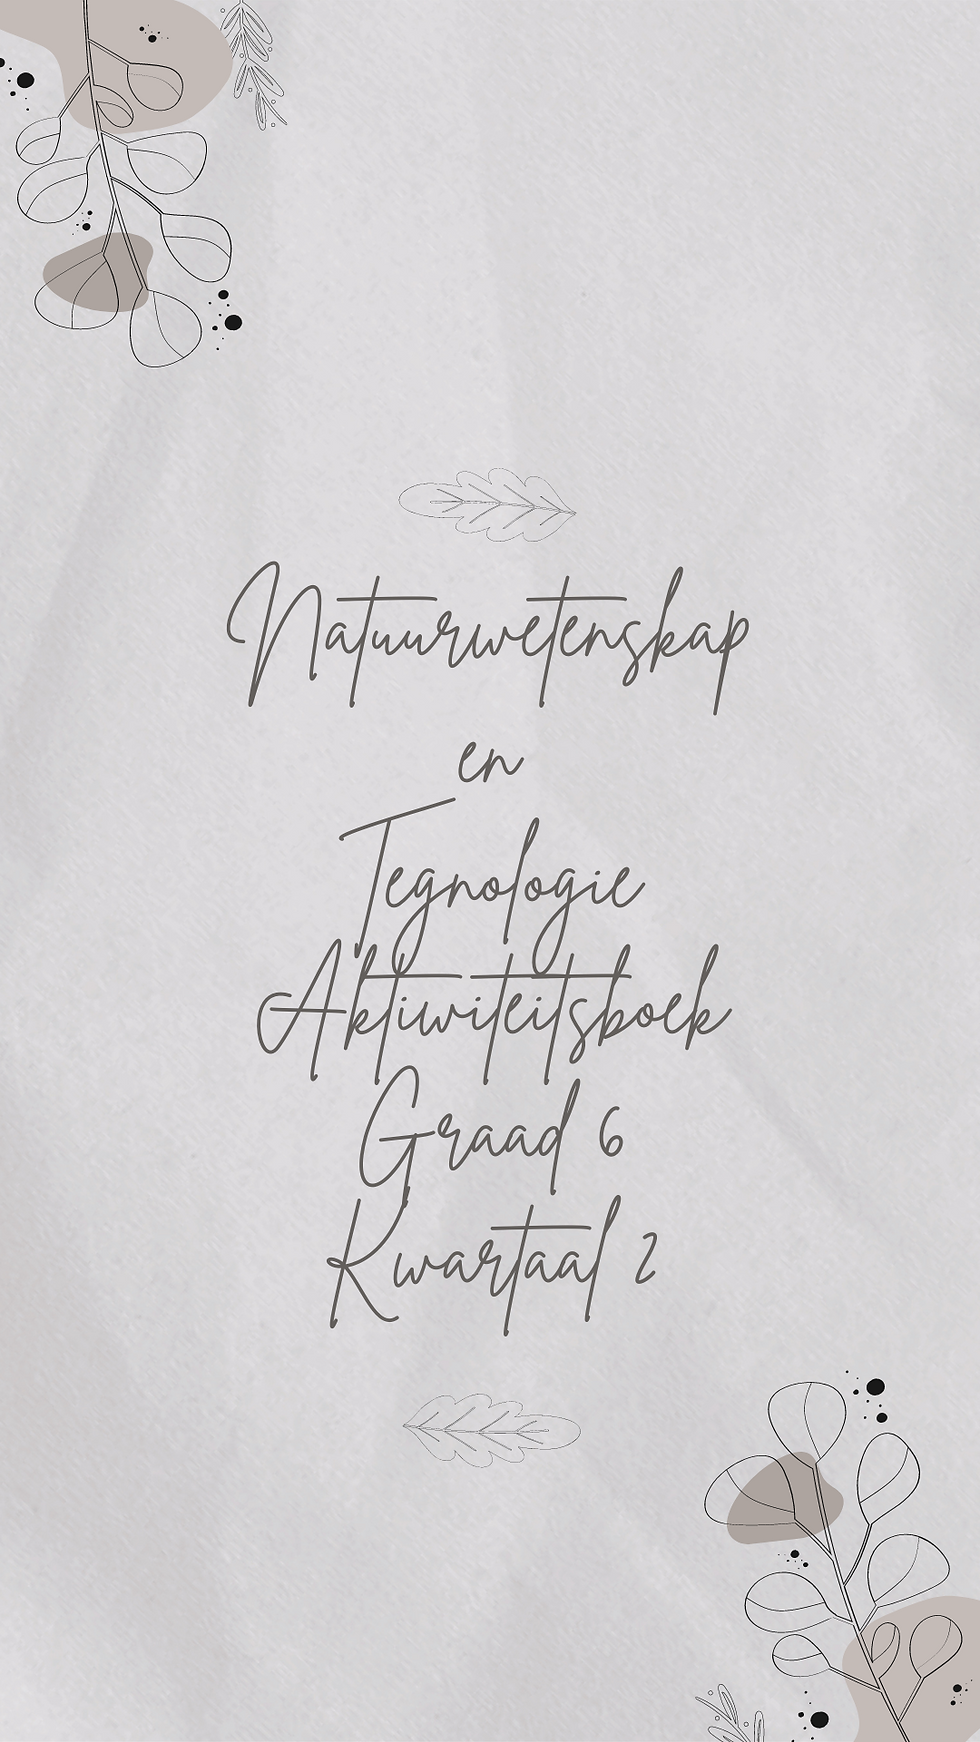 Natuurwetenskap
en
Tegnologie
Aktiwiteitsboek
Graad 6
Kwartaal 2